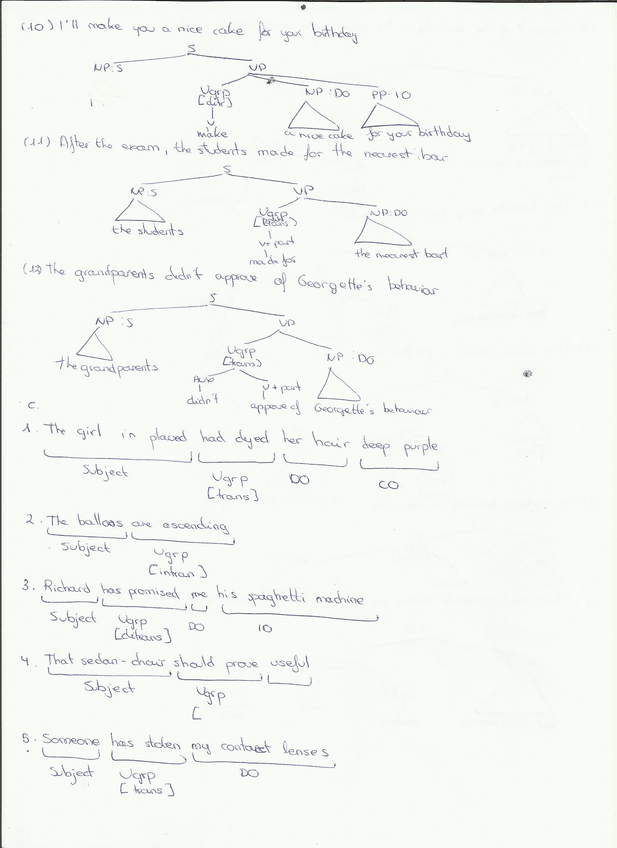 (10) I'll make you a nice cake for your birthday
S
NP:S VP
Vgrp NP:DO PP:IO
[ditr]
I V
make a nice cake for your birthday
(11) After the exam, the students made for the nearest bar
S
NP:S VP
Vgrp NP:DO
[trans]
the students v+part the nearest bar
made for
(12) The grandparents didn't approve of Georgette's behaviour
S
NP:S VP
Vgrp NP:DO
the grandparents [trans]
Aux v+part
didn't approve of Georgette's behaviour
C.
1. The girl in placed had dyed her hair deep purple
Subject Vgrp DO CO
[trans]
2. The balloos are ascending
Subject Vgrp
[intran]
3. Richard has promised me his spaghetti machine
Subject Vgrp DO IO
[ditrans]
4. That sedan-chair should prove useful
Subject Vgrp
[
5. Someone has stolen my contact lenses
Subject Vgrp DO
[trans]